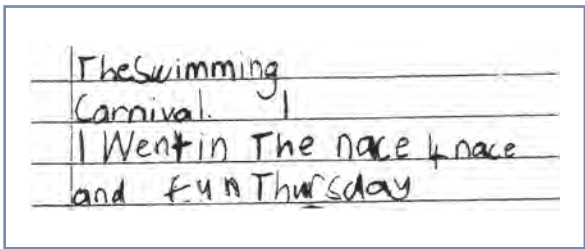 TheSwimming
Carnival. I
I Wentin The nace 4 nace
and fun Thursday